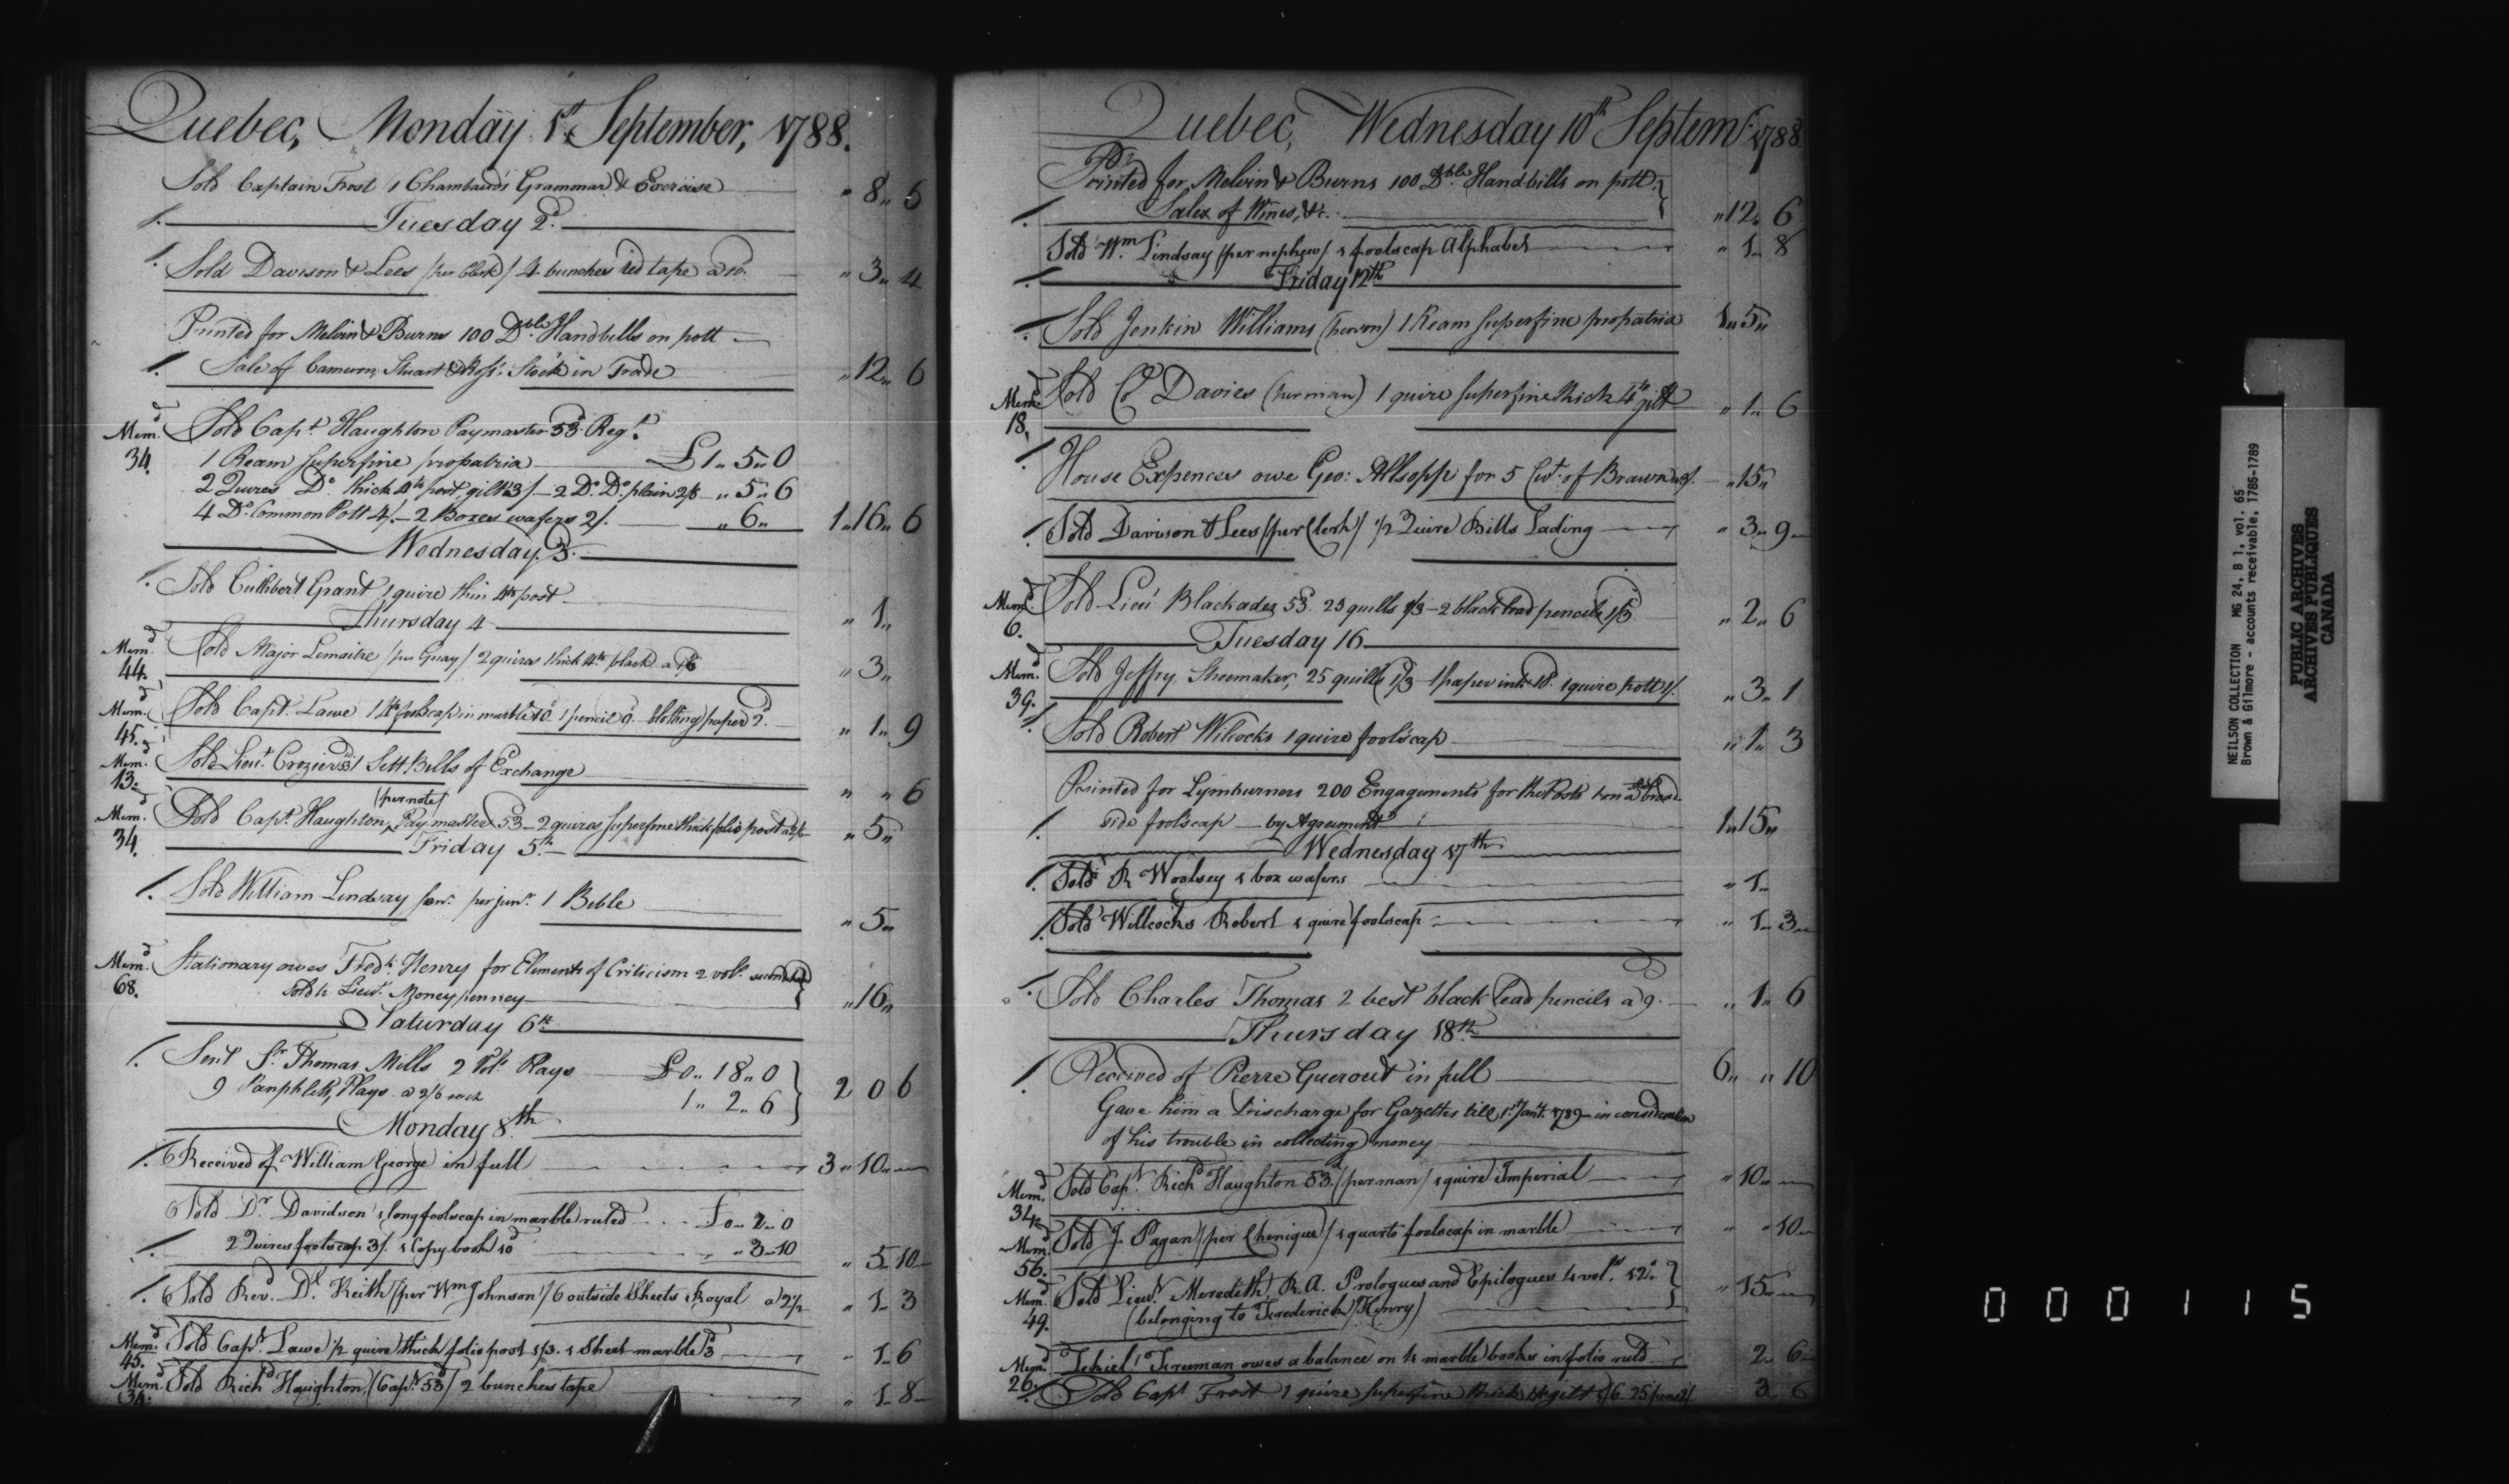 Quebec, Monday 1st September, 1788.
Sold Captain Frost 1 Chambaud's Grammar & Exercise " 8 " 5
/. Tuesday 2d.
/. Sold Davison & Lees /per Clerk/ 4 bunches red tape a 10d. " 3 " 4
Printed for Melvin & Burns 100 Dble. Handbills on pott
/. Sale of Cameron, Stuart & Ross's Stock in Trade " 12 " 6
Memd. 34. Sold Capt. Haughton Paymaster 53d. Regt.
1 Ream superfine propatria £ 1 " 5 " 0
2 Quires Do. thick 4to post, gilt 3/ — 2 Do. Do. plain 2/6 " 5 " 6
4 Do. Common Pott 4/. — 2 Boxes wafers 2/. " 6 " 1 " 16 " 6
Wednesday 3d.
/. Sold Cuthbert Grant 1 quire thin 4to post " 1 "
Thursday 4
Memd. 44. Sold Major Lemaitre /per Guay/ 2 quires thick 4to black a 1/6 " 3 "
Memd. 45. Sold Capt. Lawe 1 4to foolscap in marble 10d. 1 pencil 9d. blotting paper 2d. " 1 " 9
Memd. 13. Sold Lieut. Crozier 53d 1 Sett Bills of Exchange " " 6
Memd. 34. Sold Capt. Haughton /per note/ Paymaster 53d — 2 quires superfine thick folio post a 2/6 " 5 "
Friday 5th.
/. Sold William Lindsay senr. per junr. 1 Bible " 5 "
Memd. 68. Stationary owes Fredk. Henry for Elements of Criticism 2 vols. second hand
Sold to Lieut. Moneypenney " 16 "
Saturday 6th.
/. Sent Sr. Thomas Mills 2 Vols. Plays £ 0 " 18 " 0
9 Pamphlets, Plays a 2/6 each 1 " 2 " 6 2 0 6
Monday 8th.
/. Received of William George in full 3 " 10 "
Sold Dr. Davidson 1 long foolscap in marble ruled £ 0 " 2 " 0
/. 2 Quires foolscap 3/. 1 Copy book 10d " 3 " 10 " 5 " 10
/. Sold Revd. Dr. Keith /per Wm Johnson/ 6 outside Sheets Royal a 2½ " 1 " 3
Memd. 45. Sold Capt. Lawe ½ quire thick folio post 1/3. 1 Sheet marble 3d " 1 " 6
Memd. 34. Sold Richd. Haughton /Capt. 53d/ 2 bunches tape " 1 " 8
Quebec, Wednesday 10th Septemr. 1788.
Printed for Melvin & Burns 100 Dble. Handbills on pott
/. Sales of Wines, &c. " 12 " 6
Sold Wm. Lindsay /per nephew/ 1 foolscap Alphabet " 1 " 8
/. Friday 12th
/. Sold Jenkin Williams (per son) 1 Ream superfine propatria 1 " 5 "
Memd. 18. Sold Cl. Davies (per man) 1 quire superfine thick 4to gilt " 1 " 6
/. House Expences owe Geo: Allsopp for 5 Cwt. of Brawn a 3/. " 15 "
/. Sold Davison & Lees /per Clerk/ ½ Quire Bills Lading " 3 " 9
Memd. 6. Sold Lieut. Blackader 53d. 25 quills 1/3 — 2 black lead pencils 1/3 " 2 " 6
Tuesday 16
Memd. 39. Sold Jeffry Shoemaker, 25 quills 1/3 — 1 paper ink 10d. 1 quire pott 1/. " 3 " 1
/. Sold Robert Wilcocks 1 quire foolscap " 1 " 3
Printed for Lymburners 200 Engagements for the Posts on a broad
/. side foolscap — by Agreement 1 " 15 "
Wednesday 17th
/. Sold R Woolsey 1 box wafers " 1 "
/. Sold Willcocks Robert 1 quire foolscap " 1 " 3
/. Sold Charles Thomas 2 best black lead pencils a 9d. " 1 " 6
Thursday 18th
/. Received of Pierre Guerout in full 6 " " 10
Gave him a Discharge for Gazettes till 1st Jany. 1789 — in consideration
of his trouble in collecting money
Memd. 34. Sold Capt. Richd Haughton 53d /per man/ 1 quire Imperial " 10 "
Memd. 56. Sold J. Pagan /per Chenique/ 1 quarto foolscap in marble " " 10
Memd. 49. Sold Lieut. Meredith, R.A. Prologues and Epilogues 4 vols. 12o.
(belonging to Frederick Henry) " 15 "
Memd. 26. Freeman owes a balance on 4 marble books in folio ruld 2 " 6
/. Sold Capt Frost 1 quire superfine thick 4to gilt 1/6 25 pens 2/ 3 6
NEILSON COLLECTION MG 24, B 1, vol. 65
Brown & Gilmore - accounts receivable, 1785-1789
PUBLIC ARCHIVES
ARCHIVES PUBLIQUES
CANADA
000115